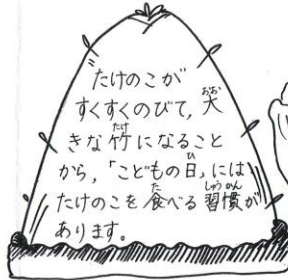 たけのこが
すくすくのびて，大
きな竹になること
から，「こどもの日」には
たけのこを食べる習慣が
あります。